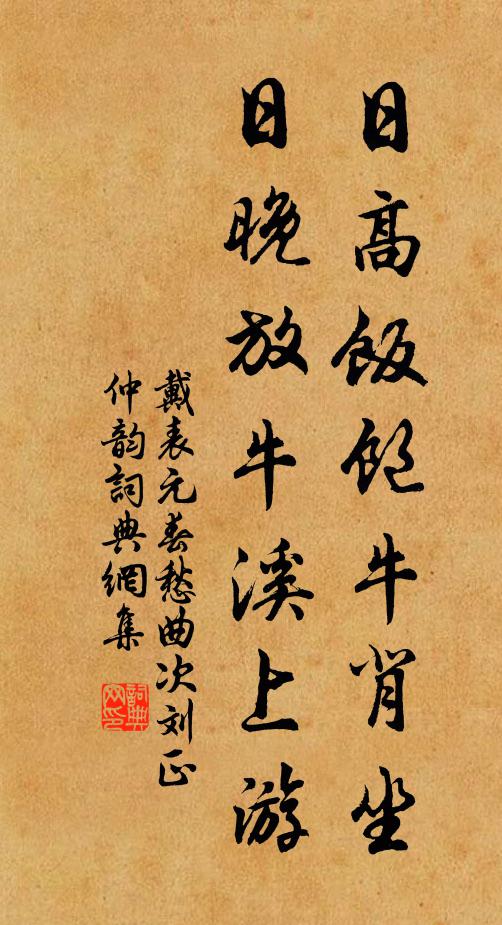 日高飯飽牛背坐
日晚放牛溪上游
戴表元春愁曲次刘正
仲韵詞典網集
詞典
网印